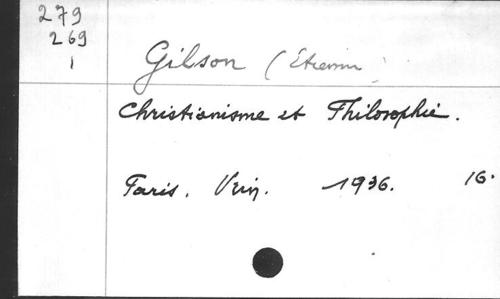 279
269
1
Gilson (Étienne)
Christianisme et Philosophie.
Paris. Vrin. 1936. 16.